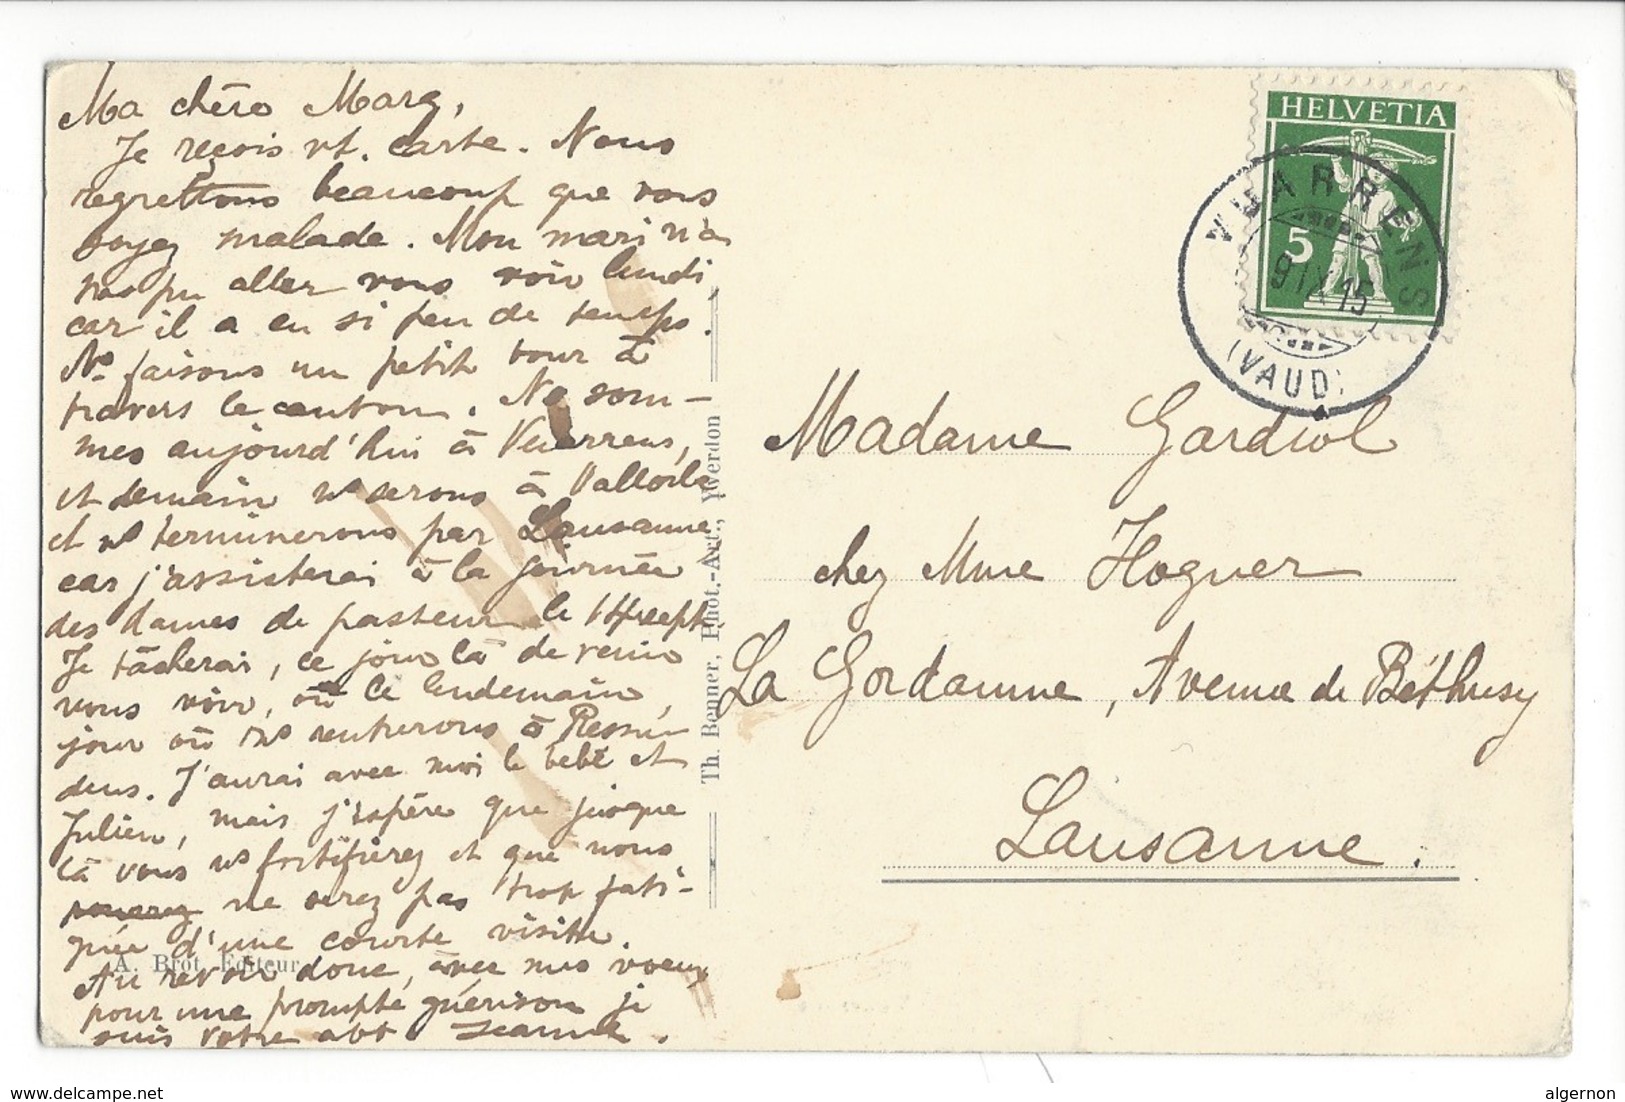 Ma chère Marg,
Je reçois vt. carte. Nous
regrettons beaucoup que vous
soyez malade. Mon mari n'a
pas pu aller vous voir lundi,
car il a eu si peu de temps.
Ns faisons un petit tour à
travers le canton. Ns som-
mes aujourd'hui à Vuarrens,
et demain ns serons à
et ns terminerons par Lausanne,
car j'assisterai à la journée
des dames de pasteur le
Je tâcherai, ce jour là de venir
vous voir, ou le lendemain,
jour où ns rentrerons à Ressu-
dens. J'aurai avec moi le bébé et
Julien, mais j'espère que jusque
là vous vs fortifierez et que vous
ne serez pas trop fati-
guée d'une courte visite.
Au revoir donc, avec mes voeux
pour une prompte guérison je
suis votre abt Jeanne.
A. Brot, Editeur
Th. Benner, Phot.-Art., Yverdon
HELVETIA
5
VUARRENS
9 IX 15
(VAUD)
Madame Gardiol
chez Mme Hogner
La Gordanne, Avenue de Béthusy
Lausanne.
www.delcampe.net
algernon